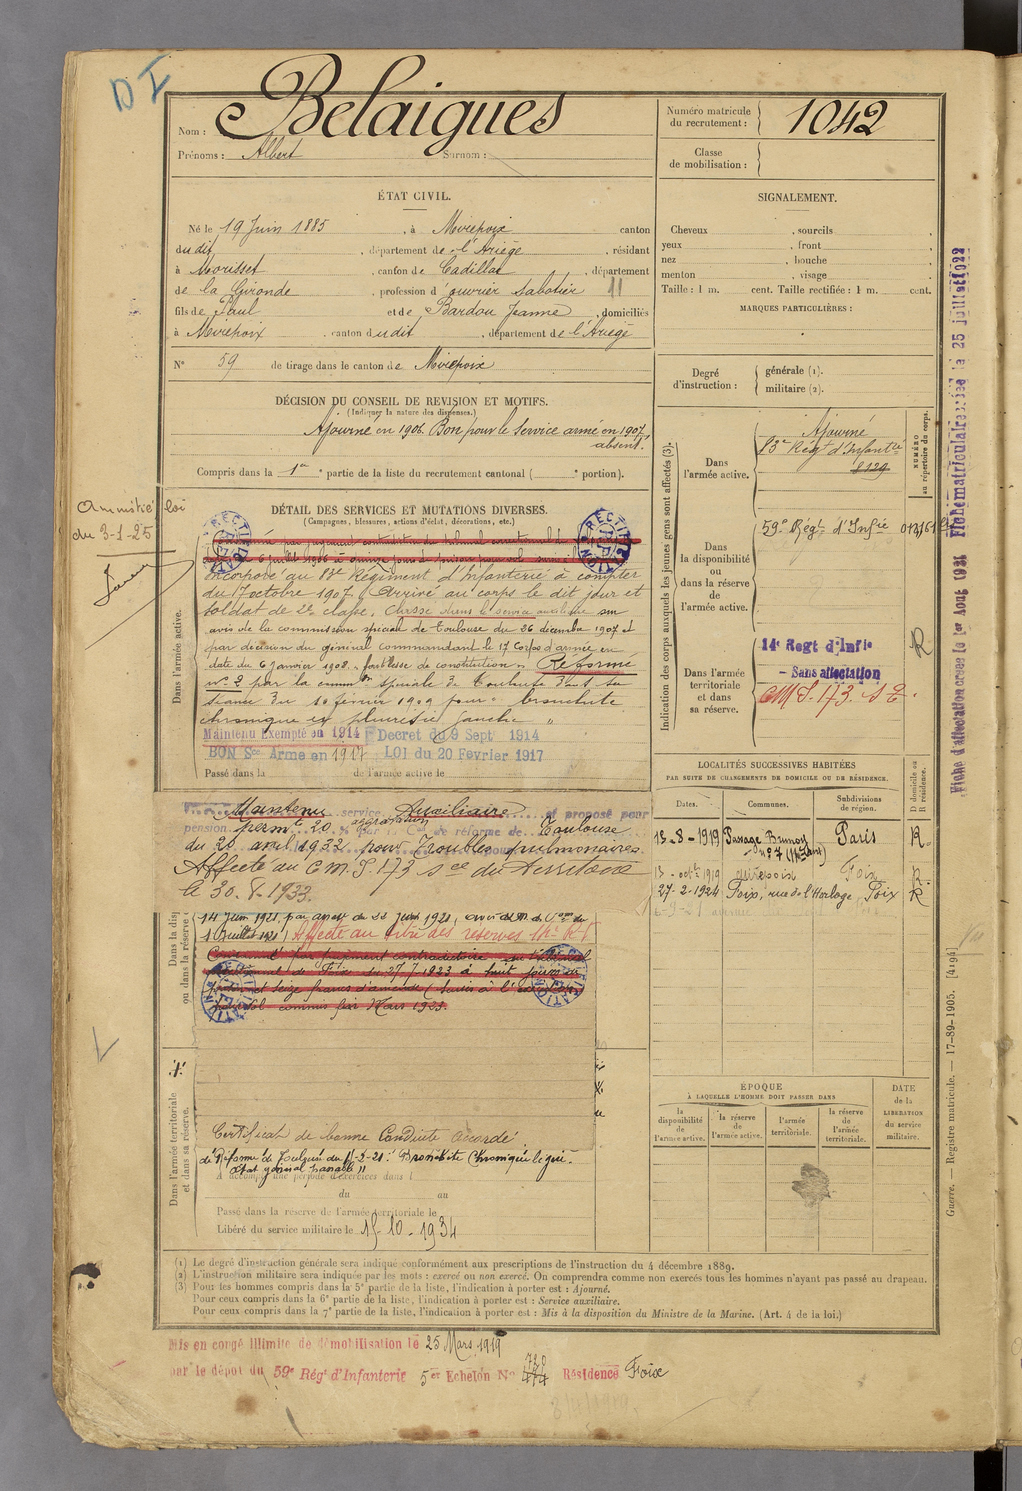 D I
Nom : Belaigues
Prénoms : Albert Surnom :
Numéro matricule du recrutement : 1042
Classe de mobilisation :
ÉTAT CIVIL.
Né le 19 Juin 1885, à Mirepoix canton
dudit, département de l'Ariège, résidant
à Mourisset, canton de Cadillac, département
de la Gironde, profession d'ouvrier sabotier 11
fils de Paul et de Bardou Jeanne, domiciliés
à Mirepoix, canton dudit, département de l'Ariège
N° 59 de tirage dans le canton de Mirepoix
SIGNALEMENT.
Cheveux , sourcils ,
yeux , front ,
nez , bouche ,
menton , visage .
Taille : 1 m. cent. Taille rectifiée : 1 m. cent.
MARQUES PARTICULIÈRES :
Degré d'instruction : générale (1).
militaire (2).
DÉCISION DU CONSEIL DE REVISION ET MOTIFS.
(Indiquer la nature des dispenses.)
Ajourné en 1906. Bon pour le service armé en 1907,
absent.
Compris dans la 1re partie de la liste du recrutement cantonal ( e portion).
Amnistié loi
du 3-1-25
DÉTAIL DES SERVICES ET MUTATIONS DIVERSES.
(Campagnes, blessures, actions d'éclat, décorations, etc.)
Dans l'armée active.
RECTIFICATION
RECTIFICATION
incorporé au 83e Régiment d'Infanterie à compter
du 17 octobre 1907. Arrivé au corps le dit jour et
soldat de 2e classe. Classé dans le service auxiliaire sur
avis de la commission spéciale de Toulouse du 26 décembre 1907 et
par décision du général commandant le 17 Corps d'armée en
date du 6 janvier 1908. "faiblesse de constitution". Réformé
n° 2 par la comm on spéciale de Toulouse dans sa
séance du 10 février 1909 pour " bronchite
chronique et pleurésie gauche "
Maintenu Exempté en 1914 Decret du 9 Sept 1914
BON Sce Armé en 1917 LOI du 20 Février 1917
Passé dans la de l'armée active le
Maintenu service Auxiliaire et proposé pour
pension permte 20 % aggravation par la Con de réforme de Toulouse
du 20 avril 1932 pour Troubles pulmonaires
Affecté au C M I 173 sce du Territoire
le 30.8.1933.
Dans la dis
ou dans la réserve
1 Juillet 1921 Affecté au titre des réserves
RECTIFICATION
RECTIFICATION
Dans l'armée territoriale et dans sa réserve.
Certificat de bonne Conduite accordé.
État général passable "
A accompli une période d'exercices dans l
du au
Passé dans la réserve de l'armée territoriale le
Libéré du service militaire le 15-10-1934
Indication des corps auxquels les jeunes gens sont affectés (3).
NUMÉRO au répertoire du corps.
Dans l'armée active. Ajourné
83e Régt d'Infantie
8129
Dans la disponibilité ou dans la réserve de l'armée active. 59e Régt d'Infie
Dans l'armée territoriale et dans sa réserve. 14e Regt d'Infie
— Sans affectation
CMI. 173. S T.
R
LOCALITÉS SUCCESSIVES HABITÉES
PAR SUITE DE CHANGEMENTS DE DOMICILE OU DE RÉSIDENCE.
Dates. Communes. Subdivisions de région. D domicile ou R résidence.
13-8-1919 Passage Brunoy n° 7 Paris R.
Mirepoix Foix R
27-2-1924 Foix, rue de l'Horloge Foix R
ÉPOQUE
À LAQUELLE L'HOMME DOIT PASSER DANS
la disponibilité de l'armée active. la réserve de l'armée active. l'armée territoriale. la réserve de l'armée territoriale.
DATE de la LIBÉRATION du service militaire.
Fiche d'affectation créée le 1er Août 1931 Fiche matriculaire créée le 25 juillet 1922
Guerre. — Registre matricule. — 17-89-1905. [4194]
(1) Le degré d'instruction générale sera indiqué conformément aux prescriptions de l'instruction du 4 décembre 1889.
(2) L'instruction militaire sera indiquée par les mots : exercé ou non exercé. On comprendra comme non exercés tous les hommes n'ayant pas passé au drapeau.
(3) Pour les hommes compris dans la 5e partie de la liste, l'indication à porter est : Ajourné.
Pour ceux compris dans la 6e partie de la liste, l'indication à porter est : Service auxiliaire.
Pour ceux compris dans la 7e partie de la liste, l'indication à porter est : Mis à la disposition du Ministre de la Marine. (Art. 4 de la loi.)
Mis en congé illimité de démobilisation le 25 Mars 1919
par le dépôt du 59e Régt d'Infanterie 5e Echelon N° 720 474 Résidence Foix